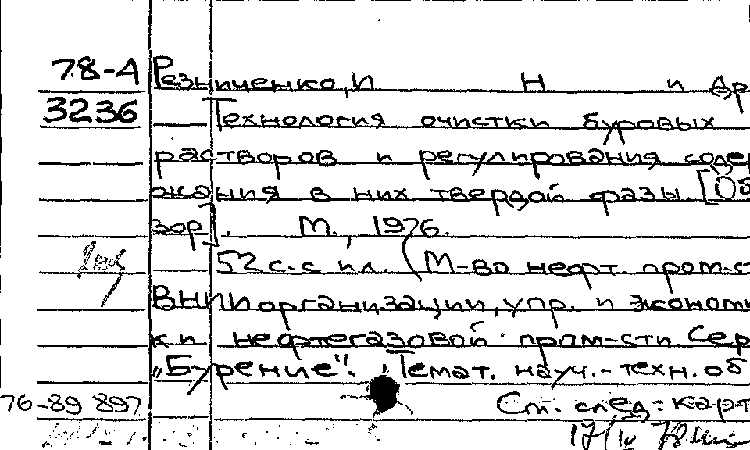 78-А Резниченко, И Н и др
3236 Технология очистки буровых
растворов и регулирования содер
жания в них твердой фазы. [Об
зор]. М., 1976.
52 с. с ил. (М-во нефт. пром-с
ВНИИорганизации, упр. и эконом
ки нефтегазовой пром-сти Сер
„Бурение". Темат. науч.-техн. об
76-89 897 См. след. карт
17/IV 78